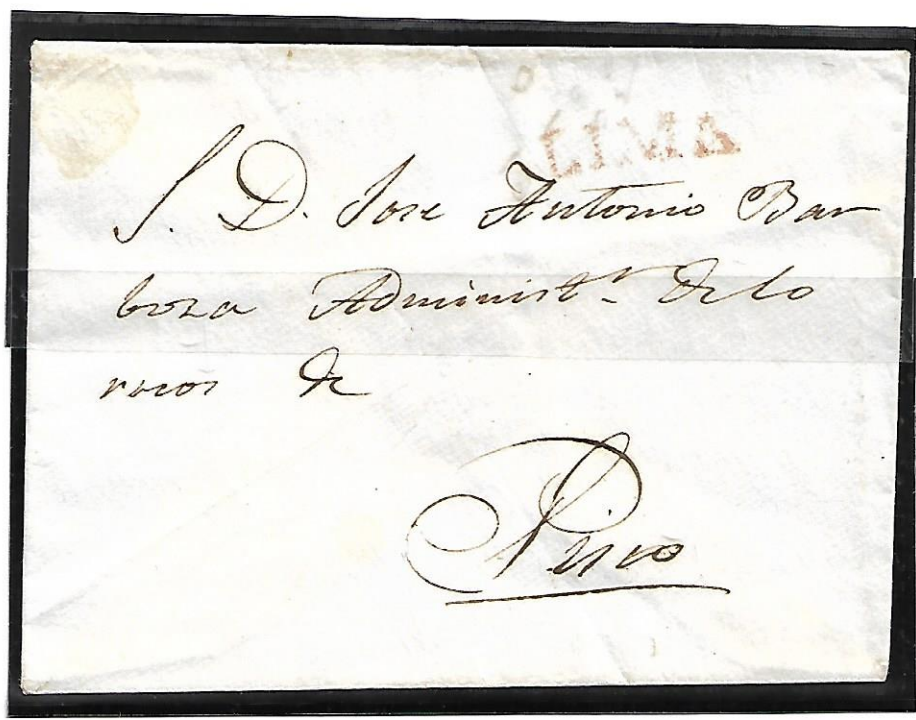 LIMA
S. D. Jose Antonio Bar
boza Administ.r de Co
rreos de
Puno